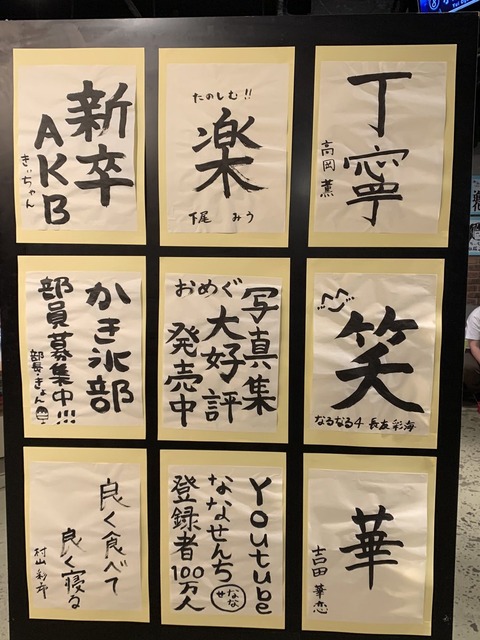 丁寧
高岡薫
たのしむ!!
楽
下尾 みう
新卒
AKB
きぃちゃん
笑
なるなる4 長友彩海
写真集
おめぐ
大好評
発売中
かき氷部
部員募集中!!!
部長・きょん
華
吉田 華恋
Youtube
ななせんち
登録者100万人
なな
せ
良く食べて
良く寝る
村山彩希